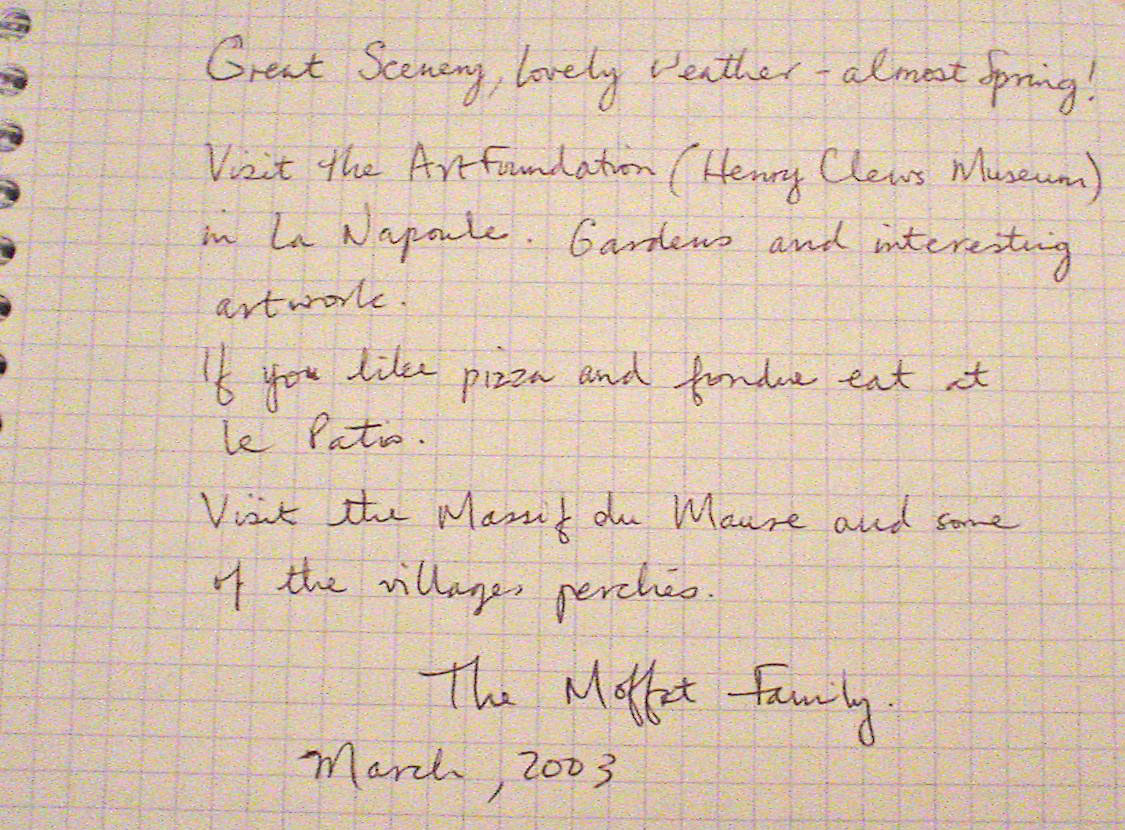 Great Scenery, lovely weather - almost Spring!
Visit the Art Foundation (Henry Clews Museum)
in La Napoule. Gardens and interesting
artwork.
If you like pizza and fondue eat at
le Patio.
Visit the Massif du Maure and some
of the villages perchés.
The Moffat Family.
March, 2003